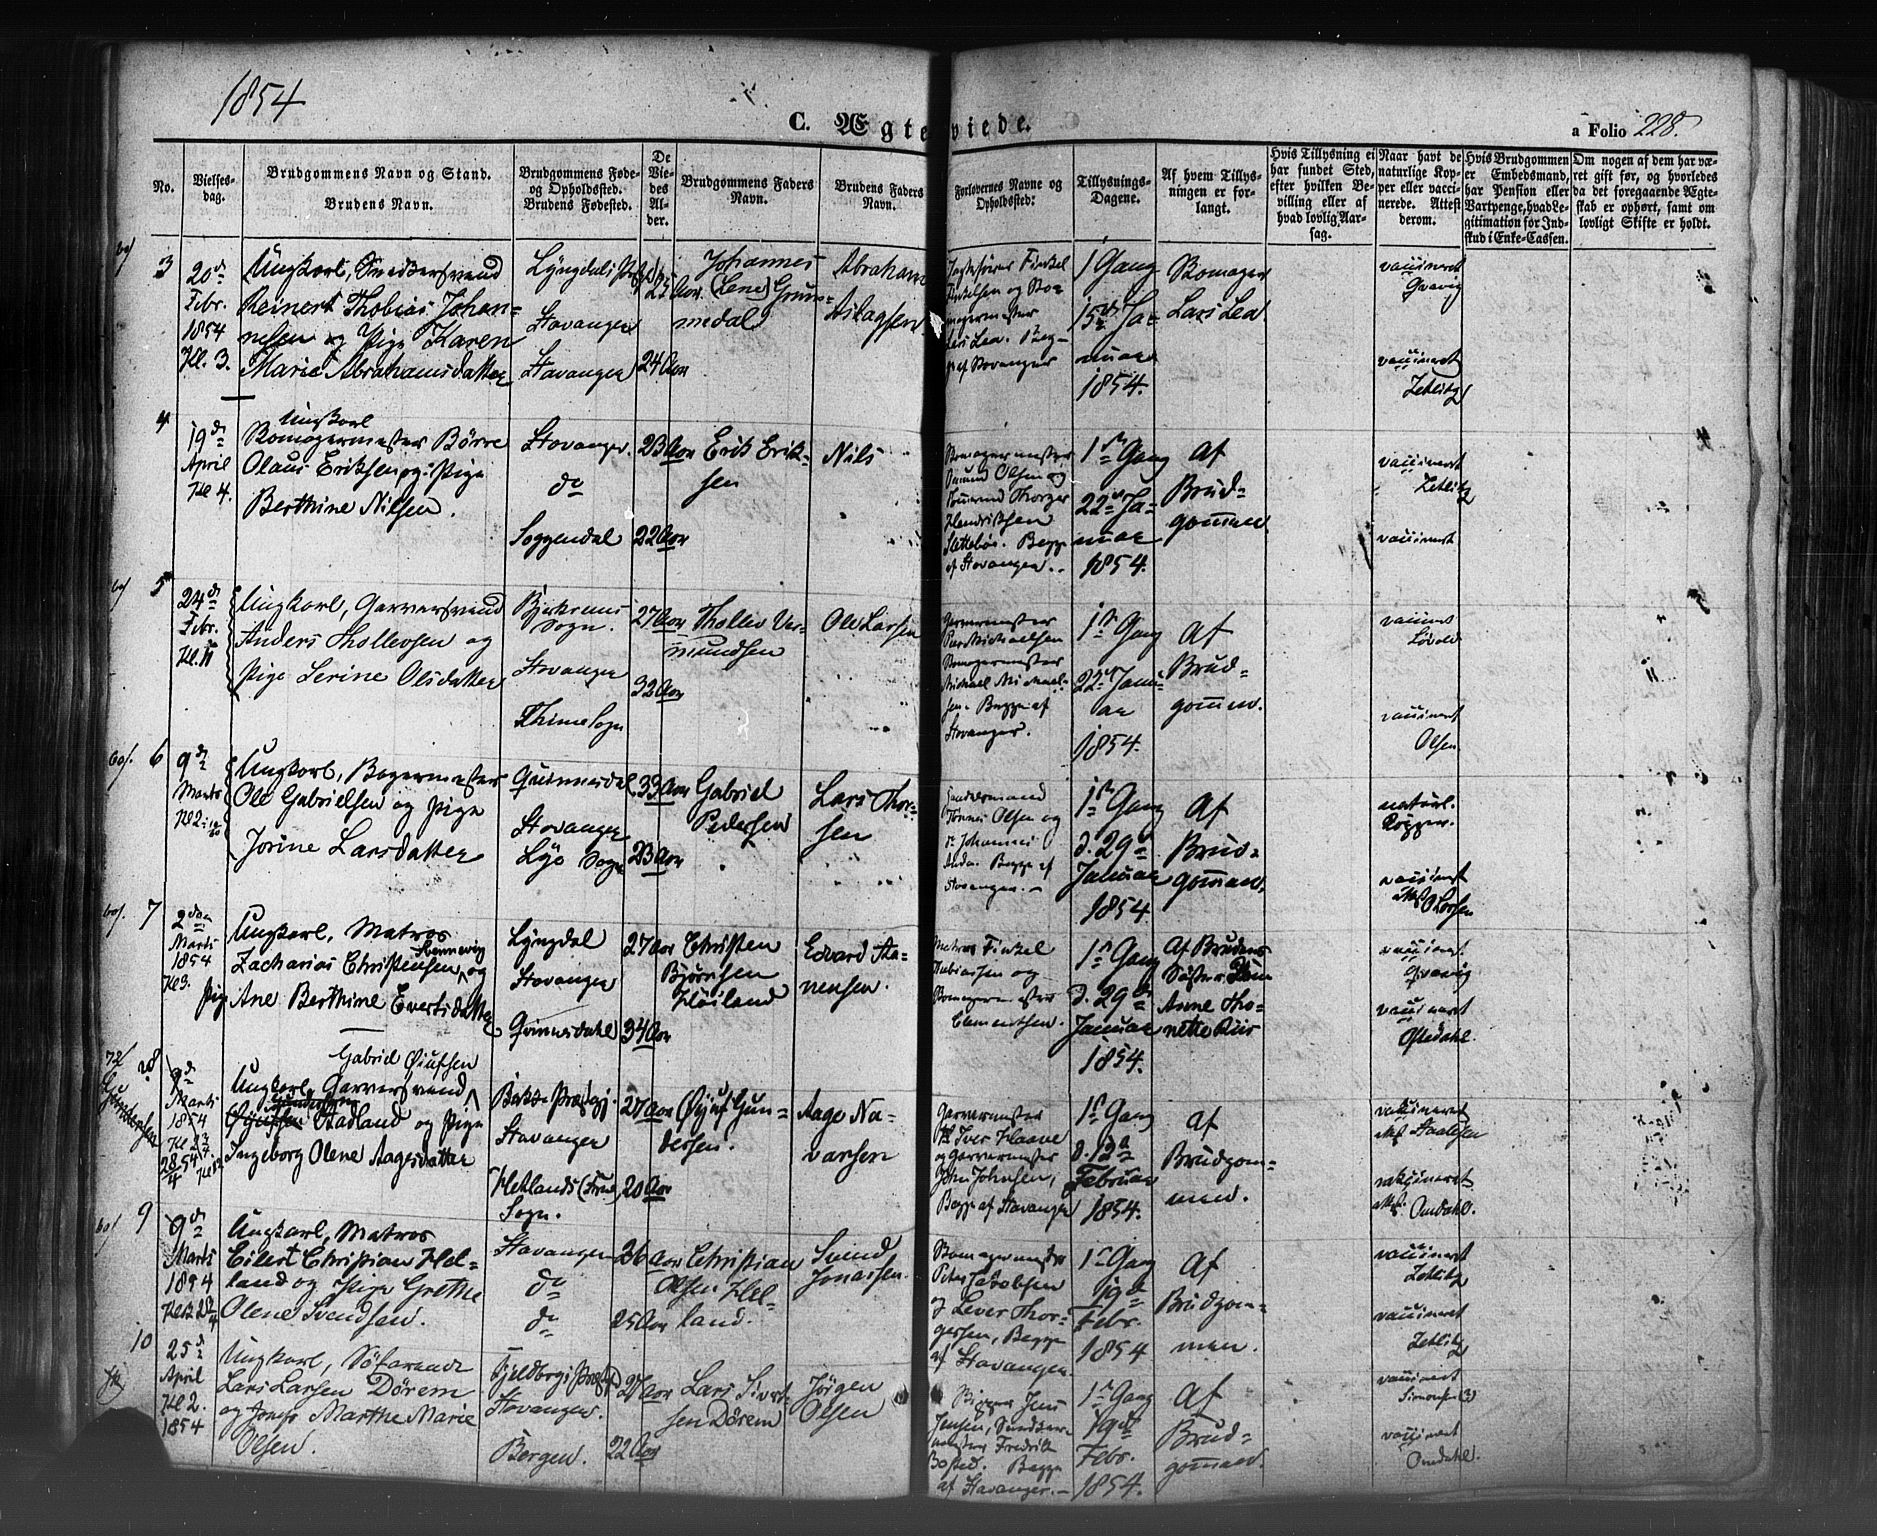 1854
C. Ægteviede.
a Folio 228.
No.
Vielses-
dag.
Brudgommens Navn og Stand.
Brudens Navn.
Brudgommens Føde-
og Opholdssted.
Brudens Fødested.
De
Vie-
des
Al-
der.
Brudgommens Faders
Navn.
Brudens Faders
Navn.
Forlovernes Navne og
Opholdssted:
Tillysnings-
Dagene.
Af hvem Tillys-
ningen er for-
langt.
Hvis Tillysning ei
har fundet Sted,
efter hvilken Be-
villing eller af
hvad lovlig Aar-
sag.
Naar havt de
naturlige Kop-
per eller vacci-
nerede. Attest
derom.
Hvis Brudgommen
er Embedsmand,
har Pension eller
Vartpenge, hvad Le-
gitimation for Ind-
skud i Enke-Cassen.
Om nogen af dem har væ-
ret gift før, og hvorledes
da det foregaaende Ægte-
skab er ophørt, samt om
lovligt Skifte er holdt.
3
20de
Febr.
1854
Kl. 3.
Ungkarl, Snedkersvend
Reinert Thobias Johan-
nessen og Pige Karen
Marie Abrahamsdatter
Stavanger
Stavanger
25 Aar
24 Aar
Johannes
(Lene) Grum-
medal
Abraham
Aslagsen
1 Gang
15de Ja-
nuar
1854.
Lars Lea
vaccineret
Qvavig
vaccineret
Zetlitz
4
19de
April
Kl 4.
Ungkarl
Børre
Olaus Eriksen og Pige
Berthine Nilsen.
Stavanger
do
Soggendal
23 Aar
22 Aar
Erik Erik-
sen
Nils
Olsen og
Hendriksen
Slettebøe. Begge
af Stavanger.
1ste Gang
22de Ja-
nuar
1854.
Af
Brud-
gommen
vaccineret
Zetlitz
vaccineret
5
24de
Febr.
Kl.
Ungkarl, Garversvend
Anders Thollevsen og
Pige Serine Olsdatter
Sogn.
Stavanger
Thime Sogn
27 Aar
32 Aar
Thollev Ver-
mundsen
Ole Larsen
Garvermester
Michaelsen
Michael Michael-
sen. Begge af
Stavanger.
1ste Gang
22de Janu-
ar
1854.
Af
Brud-
gommen.
vaccineret
Løvold
vaccineret
Olsen
6
9de
Marts
Ungkarl, Bagermester
Ole Gabrielsen og Pige
Jorine Larsdatter
Qvinnesdal
Stavanger
Lye Sogn
33 Aar
23 Aar
Gabriel
Pedersen
Lars Thor-
sen
Olsen og
Begge af
Stavanger.
1ste Gang
d. 29de
Januar
1854.
Af
Brud-
gommen.
naturl.
Kopper.
vaccineret
7
2den
Marts
1854
Ungkarl, Matros
Zacharias Christensen og
Pige Ane Berthine Evertsdatter
Lyngdal
Stavanger
Qvinnesdahl
27 Aar
34 Aar
Christen
Bjørnsen
Høiland
Edvard Aa-
nensen.
Matros
og
Clementsen.
1ste Gang
d. 29de
Januar
1854.
Af Brudens
Søster
Anne Tho-
nette Riis
vaccineret
Qvavig
vaccineret
Ofstedahl.
8
9de
Marts
1854
Gabriel Øiufsen
Ungkarl, Garversvend
Stadland og Pige
Ingeborg Olene Aagesdatter
Stavanger
Hetlands (Frue)
Sogn.
27 Aar
20 Aar
Øiuf Gun-
dersen.
Aage Na-
varsen
Garvermester
Iver Haave
og Garvermester
John Johnsen,
Begge af Stavanger
1ste Gang
d. 12te
Februar
1854.
Af
Brudgom-
men.
vakcineret
Att. Staalesen
vakcineret
Att. Omdahl.
9
9de
Marts
1854
Ungkarl, Matros
Eilert Christian Hel-
land og Pige Grethe
Olene Svendsen.
Stavanger
do
do
36 Aar
25 Aar
Christian
Olsen Hel-
land.
Svend
Jonassen.
Peter Jacobsen
og Thor-
gersen, Begge
af Stavanger.
1ste Gang
19de
Febr.
1854
Af
Brudgom-
men.
vaccineret
Zetlitz
vaccineret
Zetlitz
10
25de
April
Kl 2.
1854
Ungkarl, Søfarende
Lars Larsen Dørem
og Jomfr Marthe Marie
Olsen.
Stavanger.
Bergen.
27 Aar
22 Aar
Lars Sivert-
sen Dørem
Jørgen
Olsen
Jens
Jensen, Snedker-
mester Fredrik
Begge
af Stavanger.
1ste Gang
19de
Febr.
1854.
Af
Brud-
gommen.
vaccineret
Simonsen
vaccineret
Omdahl.